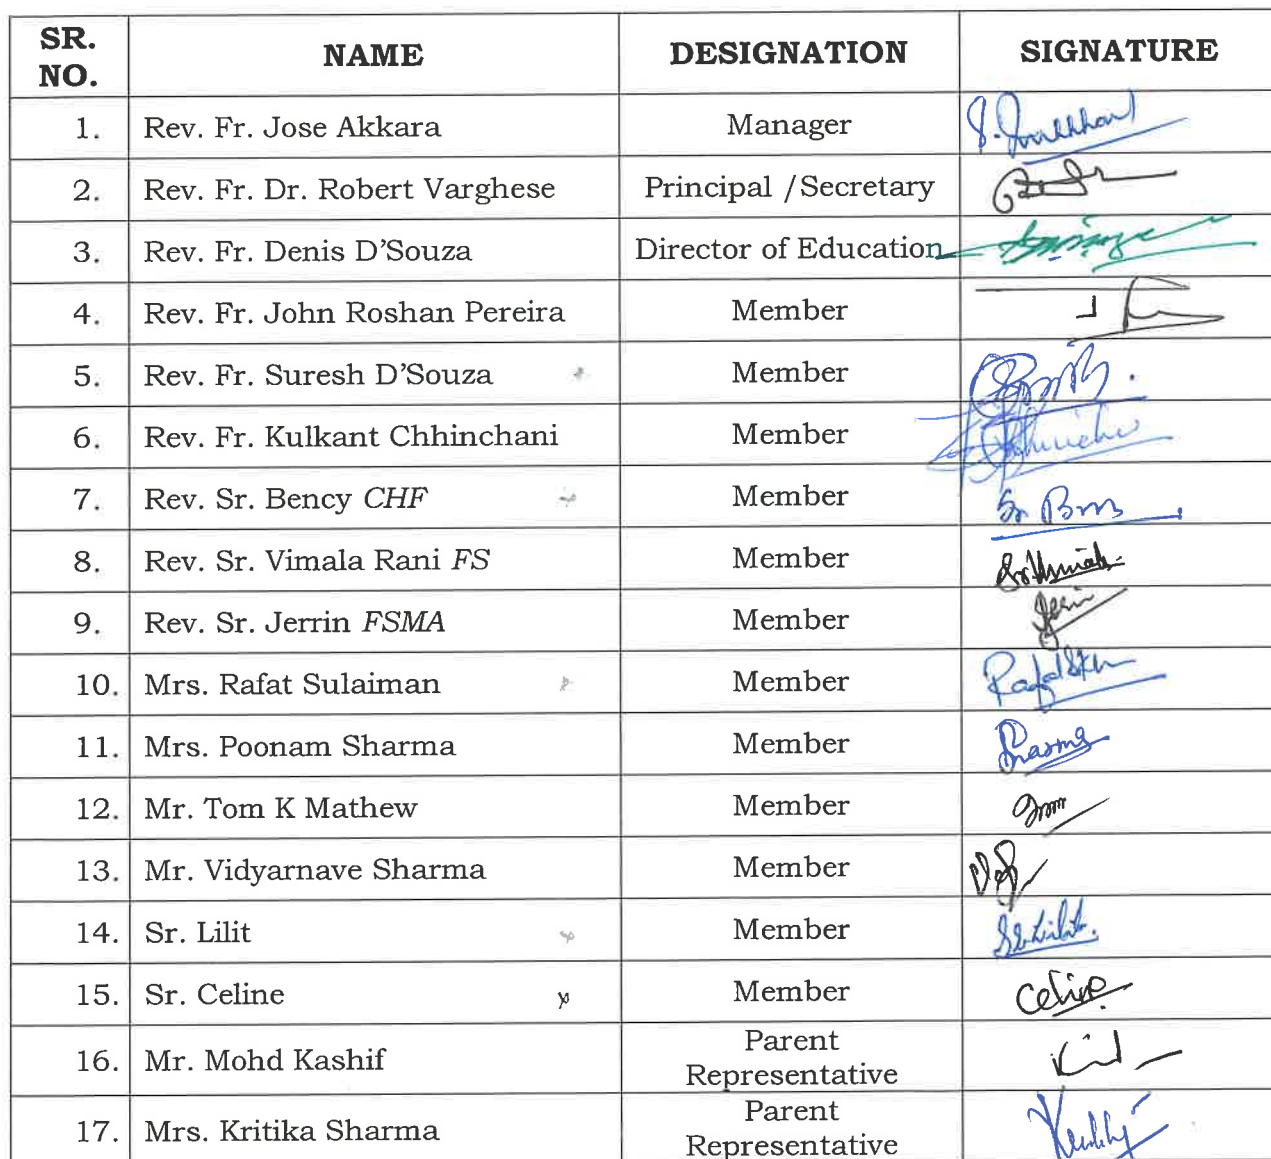 SR. NO. NAME DESIGNATION SIGNATURE
1. Rev. Fr. Jose Akkara Manager
2. Rev. Fr. Dr. Robert Varghese Principal /Secretary
3. Rev. Fr. Denis D'Souza Director of Education
4. Rev. Fr. John Roshan Pereira Member
5. Rev. Fr. Suresh D'Souza Member
6. Rev. Fr. Kulkant Chhinchani Member
7. Rev. Sr. Bency CHF Member
8. Rev. Sr. Vimala Rani FS Member
9. Rev. Sr. Jerrin FSMA Member Jerin
10. Mrs. Rafat Sulaiman Member
11. Mrs. Poonam Sharma Member Sharma
12. Mr. Tom K Mathew Member
13. Mr. Vidyarnave Sharma Member
14. Sr. Lilit Member Sr. Lilit.
15. Sr. Celine Member Celine
16. Mr. Mohd Kashif Parent Representative
17. Mrs. Kritika Sharma Parent Representative